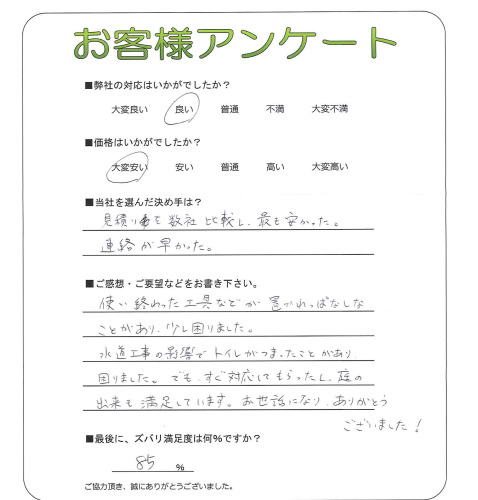 お客様アンケート
■弊社の対応はいかがでしたか?
大変良い 良い 普通 不満 大変不満
■価格はいかがでしたか?
大変安い 安い 普通 高い 大変高い
■当社を選んだ決め手は?
見積りを数社比較し、最も安かった。
連絡が早かった。
■ご感想・ご要望などをお書き下さい。
使い終わった工具などが置かれっぱなしな
ことがあり、少し困りました。
水道工事の影響でトイレがつまったことがあり
困りました。でも、すぐ対応してもらったし、庭の
出来も満足しています。お世話になり、ありがとう
ございました!
■最後に、ズバリ満足度は何%ですか?
85 %
ご協力頂き、誠にありがとうございました。